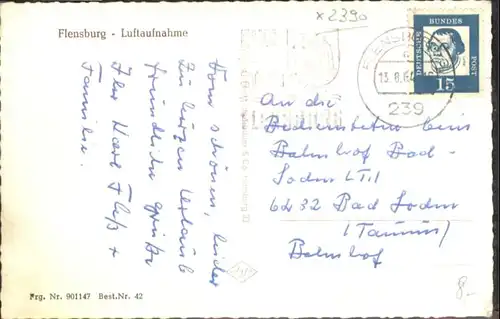 x 2390
Flensburg - Luftaufnahme
DEUTSCHE BUNDES POST
15
FLENSBURG
13.8.64
239
Vom schönen, leider
zu kurzen Urlaub
freundliche Grüße
Ihr Karl Fluß +
Familie.
An die
Bediensteten beim
Bahnhof Bad-
Soden i.T.
6232 Bad Soden
(Taunus)
Bahnhof
8.-
Frg. Nr. 901147 Best.Nr. 42